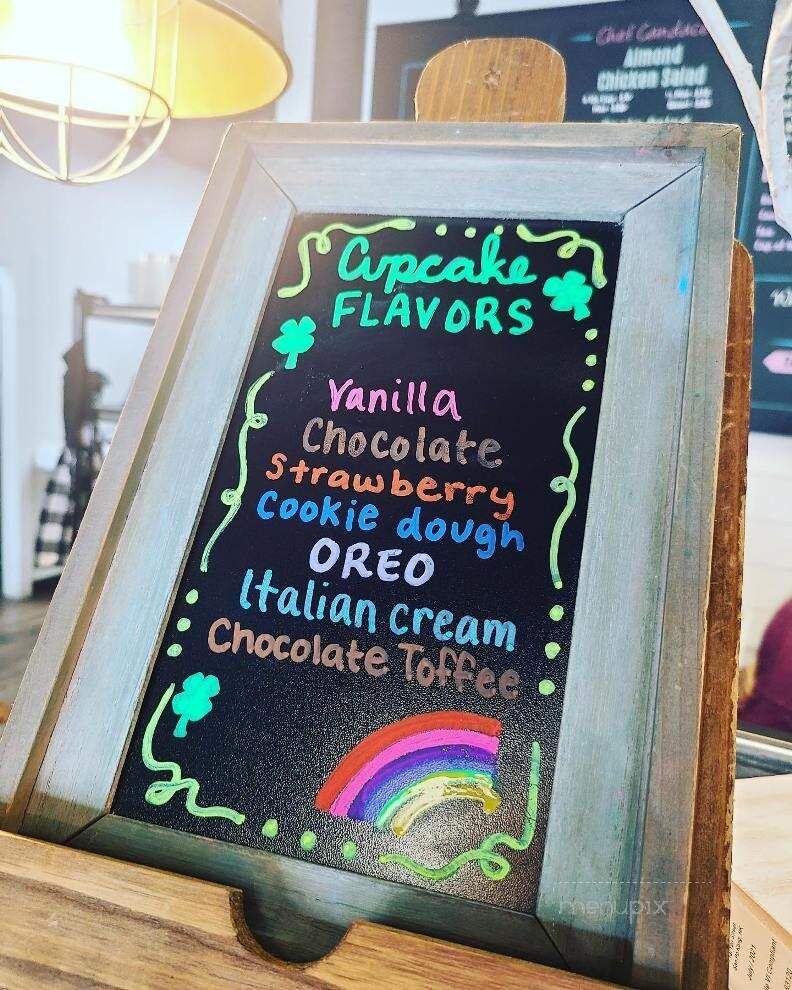 Cupcake
FLAVORS
Vanilla
Chocolate
Strawberry
Cookie dough
OREO
Italian cream
Chocolate Toffee
Chef Candace
Almond
Chicken Salad
menupix
July / 2021